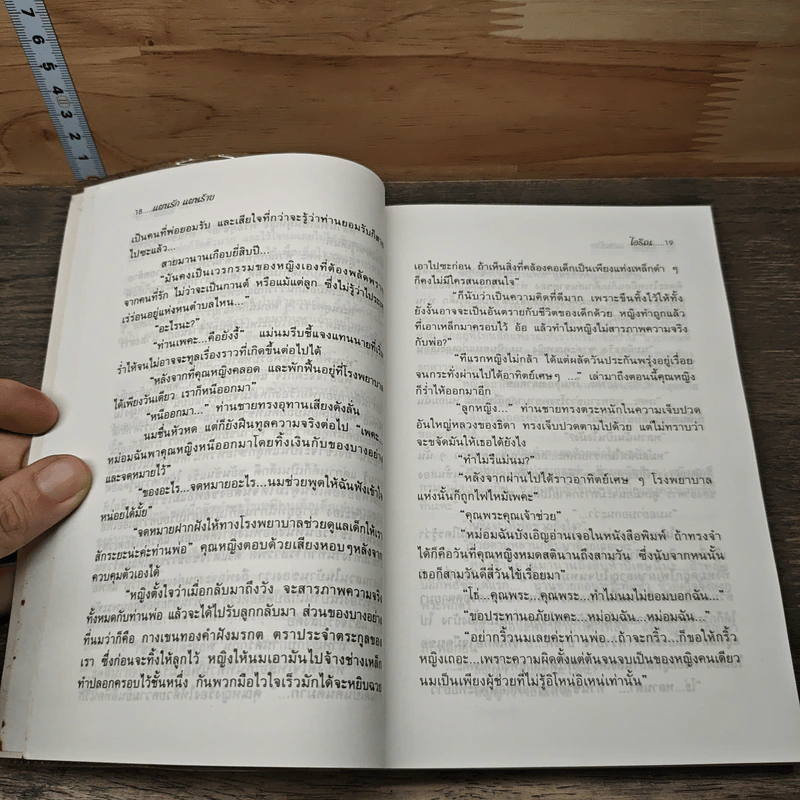 7
6
5
4
3
2
1
18.....แผนรัก แผนร้าย
เป็นคนที่พ่อยอมรับ และเสียใจที่กว่าจะรู้ว่าท่านยอมรับก็สาย
ไปซะแล้ว...
สายมานานเกือบยี่สิบปี...
“มันคงเป็นเวรกรรมของหญิงเองที่ต้องพลัดพราก
จากคนที่รัก ไม่ว่าจะเป็นกานต์ หรือแม้แต่ลูก ซึ่งไม่รู้ว่าไประหก
เร่ร่อนอยู่แห่งหนตำบลไหน...”
“อะไรนะ?”
“ท่านเพคะ...คือยังงี้” แม่นมรีบชี้แจงแทนนายที่เริ่ม
ร่ำไห้จนไม่อาจจะทูลเรื่องราวที่เกิดขึ้นต่อไปได้
“หลังจากที่คุณหญิงคลอด และพักฟื้นอยู่ที่โรงพยาบาล
ได้เพียงวันเดียว เราก็หนีออกมา”
“หนีออกมา...” ท่านชายทรงอุทานเสียงดังลั่น
นมชื่นหัวหด แต่ก็ยังฝืนทูลความจริงต่อไป “เพคะ...
หม่อมฉันพาคุณหญิงหนีออกมาโดยทิ้งเงินกับของบางอย่าง
และจดหมายไว้”
“ของอะไร...จดหมายอะไร...นมช่วยพูดให้ฉันฟังเข้าใจ
หน่อยได้มั้ย”
“จดหมายฝากฝังให้ทางโรงพยาบาลช่วยดูแลเด็กให้เรา
สักระยะน่ะค่ะท่านพ่อ” คุณหญิงตอบด้วยเสียงหอบๆหลังจาก
ควบคุมตัวเองได้
“หญิงตั้งใจว่าเมื่อกลับมาถึงวัง จะสารภาพความจริง
ทั้งหมดกับท่านพ่อ แล้วจะได้ไปรับลูกกลับมา ส่วนของบางอย่าง
ที่นมว่าก็คือ กางเขนทองคำฝังมรกต ตราประจำตระกูลของ
เรา ซึ่งก่อนจะทิ้งให้ลูกไว้ หญิงให้นมเอามันไปจ้างช่างเหล็ก
ทำปลอกครอบไว้ชั้นหนึ่ง กันพวกมือไวใจเร็วมักได้จะหยิบฉวย
ไอริณ.....19
เอาไปซะก่อน ถ้าเห็นสิ่งที่คล้องคอเด็กเป็นเพียงแท่งเหล็กดำ ๆ
ก็คงไม่มีใครสนอกสนใจ”
“ก็นับว่าเป็นความคิดที่ดีมาก เพราะขืนทิ้งไว้ให้ทั้ง
ยังงั้นอาจจะเป็นอันตรายกับชีวิตของเด็กด้วย หญิงทำถูกแล้ว
ที่เอาเหล็กมาครอบไว้ อ้อ แล้วทำไมหญิงไม่สารภาพความจริง
กับพ่อ?”
“ทีแรกหญิงไม่กล้า ได้แต่ผลัดวันประกันพรุ่งอยู่เรื่อย
จนกระทั่งผ่านไปได้อาทิตย์เศษๆ ...” เล่ามาถึงตอนนี้คุณหญิง
ก็ร่ำไห้ออกมาอีก
“ลูกหญิง...” ท่านชายทรงตระหนักในความเจ็บปวด
อันใหญ่หลวงของธิดา ทรงเจ็บปวดตามไปด้วย แต่ไม่ทราบว่า
จะขจัดมันให้เธอได้ยังไง
“ทำไมรึแม่นม?”
“หลังจากผ่านไปได้ราวอาทิตย์เศษ ๆ โรงพยาบาล
แห่งนั้นก็ถูกไฟไหม้เพคะ”
“คุณพระคุณเจ้าช่วย”
“หม่อมฉันบังเอิญอ่านเจอในหนังสือพิมพ์ ถ้าทรงจำ
ได้ก็คือวันที่คุณหญิงหมดสตินานถึงสามวัน ซึ่งนับจากหนนั้น
เธอก็สามวันดีสี่วันไข้เรื่อยมา”
“โธ่...คุณพระ...คุณพระ...ทำไมนมไม่ยอมบอกฉัน...”
“ขอประทานอภัยเพคะ...หม่อมฉัน...หม่อมฉัน...”
“อย่ากริ้วนมเลยค่ะท่านพ่อ...ถ้าจะกริ้ว...ก็ขอให้กริ้ว
หญิงเถอะ...เพราะความผิดตั้งแต่ต้นจนจบเป็นของหญิงคนเดียว
นมเป็นเพียงผู้ช่วยที่ไม่รู้อิโหน่อิเหน่เท่านั้น”